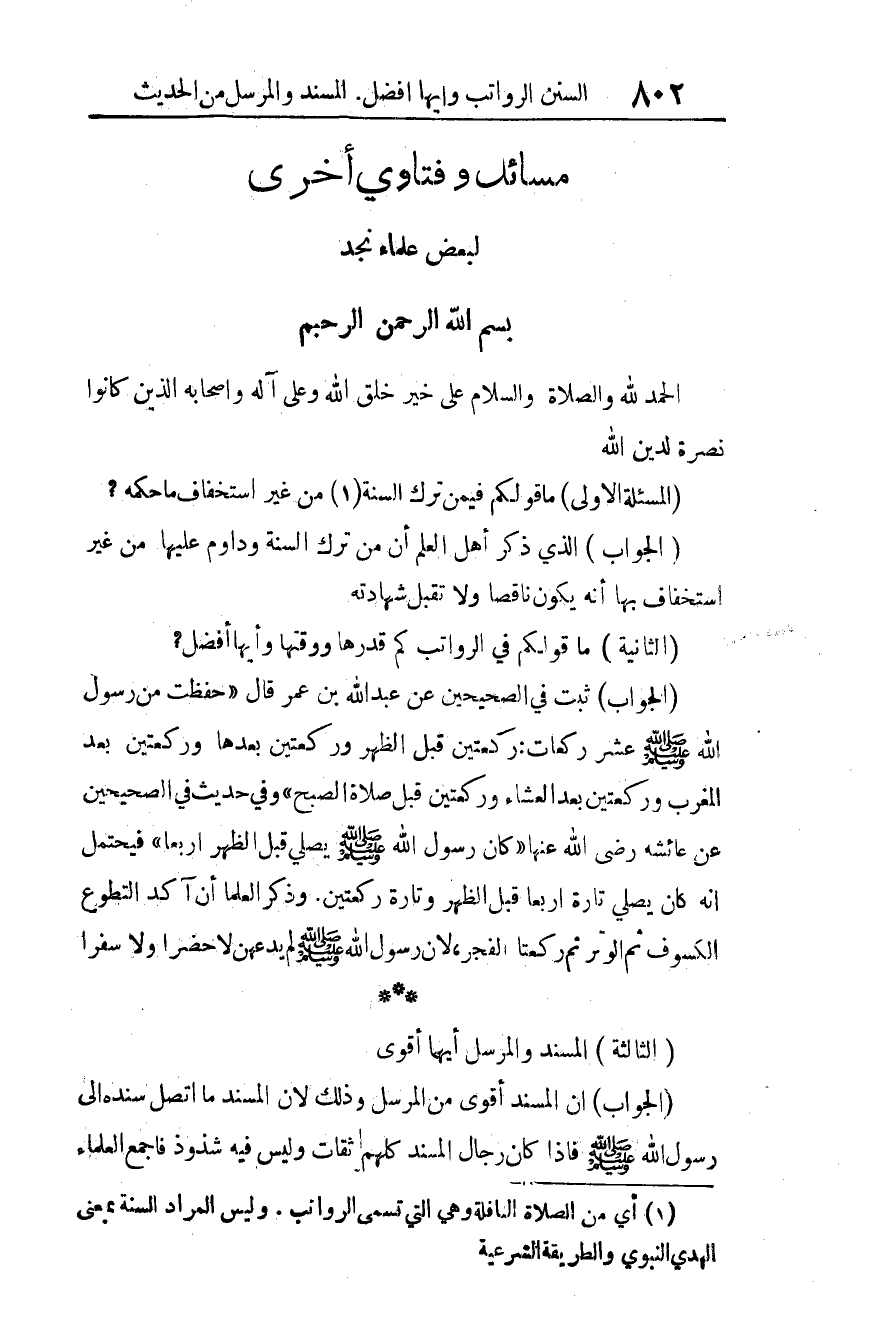 ٨٠٢ السنن الرواتب وايها افضل. المسند والمرسل من الحديث
مسائل وفتاوي أخرى
لبعض علماء نجد
بسم الله الرحمن الرحيم
الحمد لله والصلاة والسلام على خير خلق الله وعلى آله واصحابه الذين كانوا
نصرة لدين الله
(المسئلة الاولى) ماقولكم فيمن ترك السنة(١) من غير استخفاف ماحكمه ؟
( الجواب ) الذي ذكر أهل العلم أن من ترك السنة وداوم عليها من غير
استخفاف بها أنه يكون ناقصا ولا تقبل شهادته
(الثانية ) ما قولكم في الرواتب كم قدرها ووقتها وأيها أفضل؟
(الجواب) ثبت في الصحيحين عن عبدالله بن عمر قال «حفظت من رسول
الله ﷺ عشر ركعات: ركعتين قبل الظهر وركعتين بعدها وركعتين بعد
المغرب وركعتين بعد العشاء وركعتين قبل صلاة الصبح» وفي حديث في الصحيحين
عن عائشه رضى الله عنها «كان رسول الله ﷺ يصلي قبل الظهر اربعا» فيحتمل
انه كان يصلي تارة اربعا قبل الظهر وتارة ركعتين. وذكر العلما أن آكد التطوع
الكسوف ثم الوتر ثم ركعتا الفجر، لان رسول الله ﷺ لم يدعهن لا حضرا ولا سفرا
***
( الثالثة ) المسند والمرسل أيها أقوى
(الجواب) ان المسند أقوى من المرسل وذلك لان المسند ما اتصل سنده الى
رسول الله ﷺ فاذا كان رجال المسند كلهم ثقات وليس فيه شذوذ فاجمع العلماء
(١) أي من الصلاة النافلة وهي التي تسمى الرواتب . وليس المراد السنة بمعنى
الهدي النبوي والطريقة الشرعية